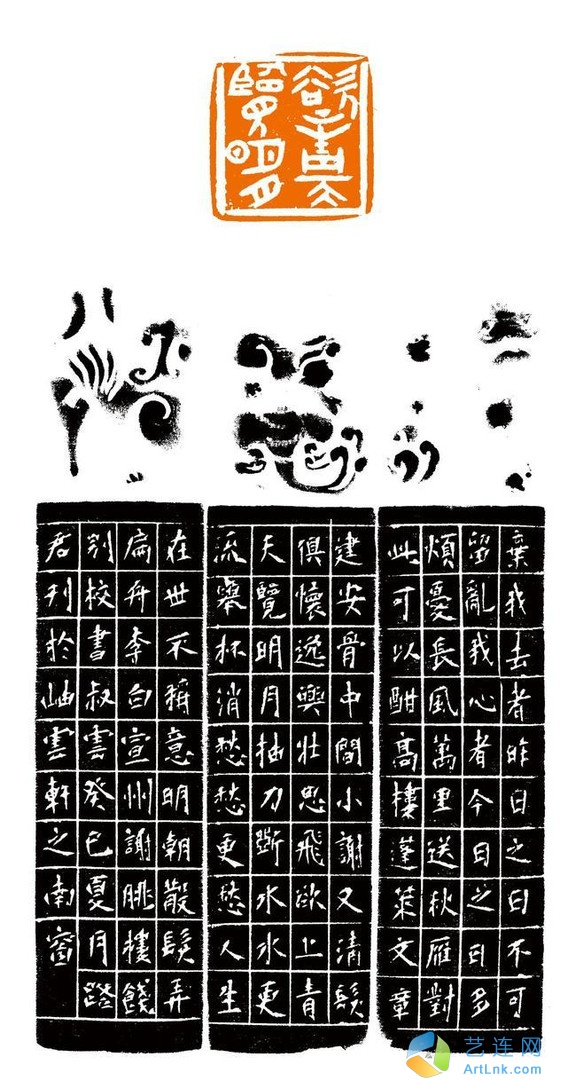 欲上青天
覽明月
棄我去者昨日之日不可
留亂我心者今日之日多
煩憂長風萬里送秋雁對
此可以酣高樓蓬萊文章
建安骨中間小謝又清髮
俱懷逸興壯思飛欲上青
天覽明月抽刀斷水水更
流舉杯消愁愁更愁人生
在世不稱意明朝散髮弄
扁舟李白宣州謝朓樓餞
別校書叔雲癸巳夏月
君刊於岫雲軒之南窗
艺连网
ArtLnk.com